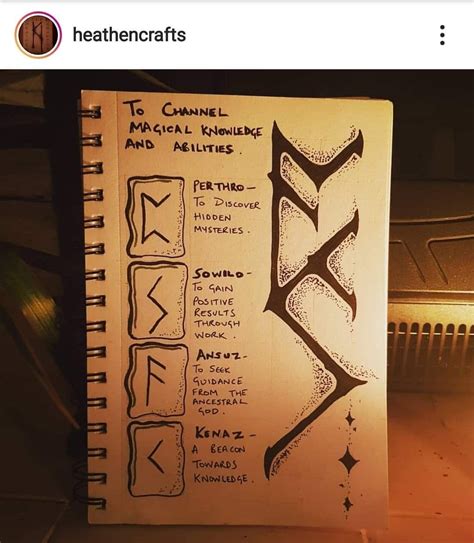 heathencrafts
To Channel
Magical Knowledge
and Abilities.
Perthro-
To Discover
Hidden
Mysteries.
Sowilo-
To gain
Positive
Results
Through
Work.
Ansuz-
To seek
Guidance
From the
Ancestral
God.
Kenaz-
A Beacon
Towards
Knowledge.